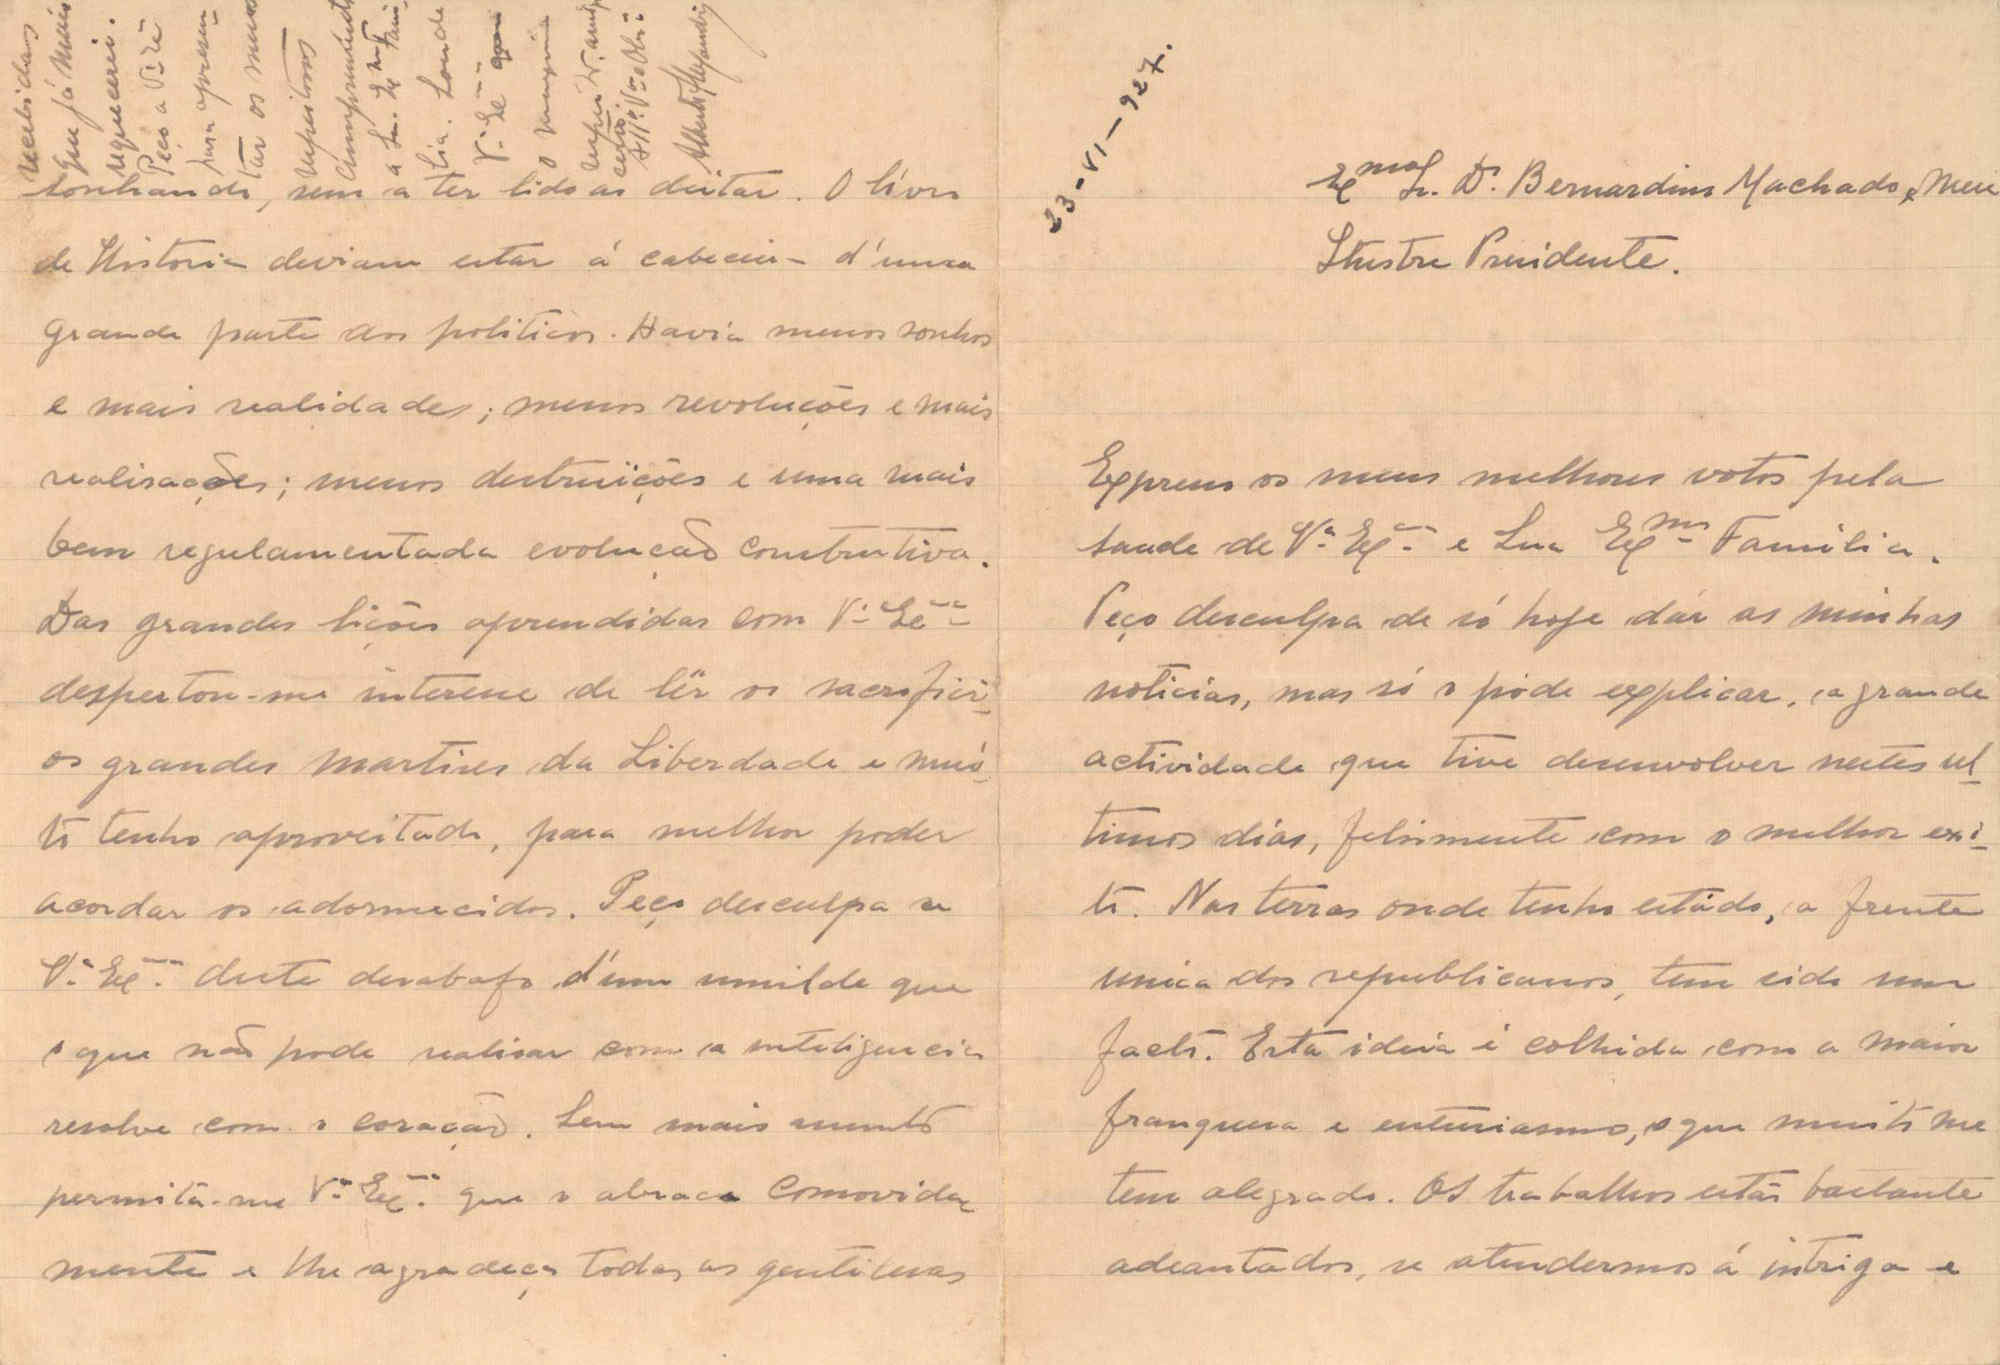 23-VI-927.
Exmo Sr. Dr. Bernardino Machado, e Meu
Ilustre Presidente.
Expresso os meus melhores votos pela
saude de Vª Exª e Sua Exma Familia.
Peço desculpa de só hoje dár as minhas
noticias, mas só o póde explicar, a grande
actividade que tive desenvolver nestes ul-
timos dias, felismente com o melhor exi-
to. Nas terras onde tenho estádo, a frente
unica dos republicanos, tem sido um
facto. Esta ideia é colhida com a maior
franquesa e enturiasmo, o que muito me
tem alegrado. Os trabalhos estão bastante
adeantados, se atendermos á intriga e
sonhando, sem a ter lido ao deitar. O livro
de Historia deviam estar á cabeceira d'uma
grande parte dos politicos. Havia menos sonhos
e mais realidades; menos revoluções e mais
realisações; menos destruições e uma mais
bem regulamentada evolução construtiva.
Das grandes lições aprendidas com Vª Exª
despertou-me interesse de lêr os sacrifici-
os grandes martires da Liberdade e mui-
to tenho aproveitado, para melhor poder
acordar os adormecidos. Peço desculpa a
Vª Exª deste desabafo d'um umilde que
o que não pode realisar com a inteligencia
resolve com o coração. Sem mais assunto
permita-me Vª Exª que o abrace comovida
mente e lhe agradeça todas as gentilesas
recebidas
que já mais
esquecerei.
Peço a V. Exª
para apresen-
tar os meus
respeitosos
cumprimentos
a Sua Exma Fami-
lia. Saude
Vª Exª
o